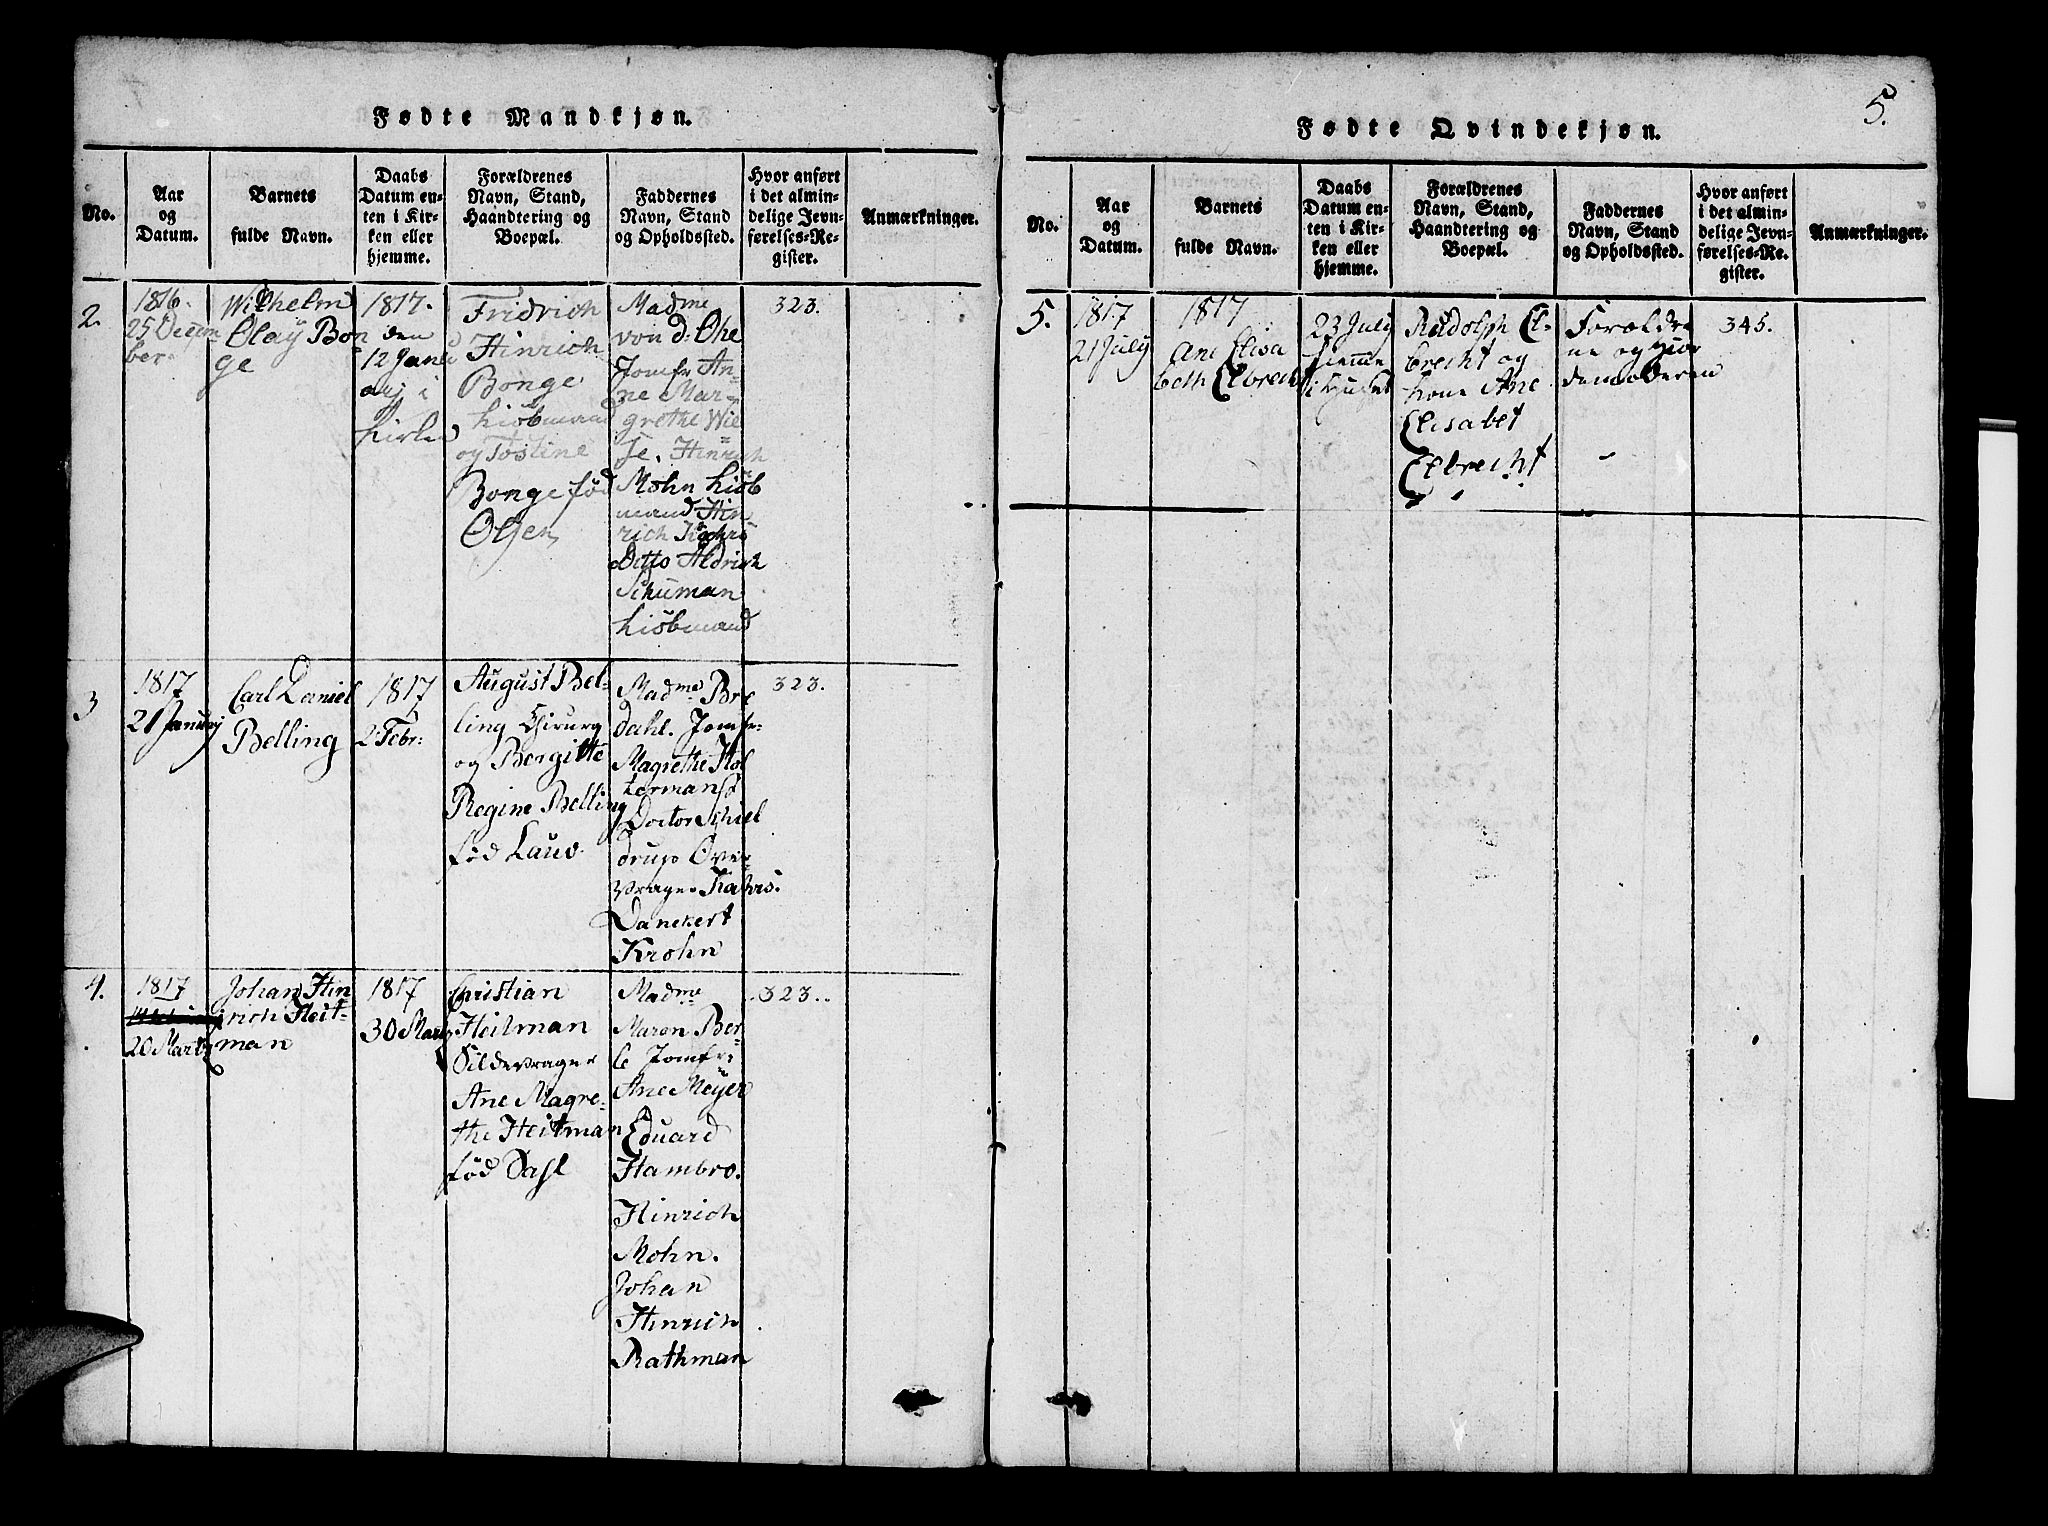 Fødte Mandkjøn.
No.
Aar
og
Datum.
Barnets
fulde Navn.
Daabs
Datum en-
ten i Kir-
ken eller
hjemme.
Forældrenes
Navn, Stand,
Haandtering og
Boepæl.
Faddernes
Navn, Stand
og Opholdssted.
Hvor anført
i det almin-
delige Jevn-
førelses-Re-
gister.
Anmærkninger.
2.
1816.
25 Decem
ber.
Wilhelm
Olay Bon
ge
1817.
den
12 Janu
arj i
Kirken
Fridrich
Hinrich
Bonge
kiøbmand
og Tostine
Bonge fød
Olsen
Madme
von d: Ohe
Jomfr An-
ne Mar-
grethe Wie
se. Hinrich
Mohn kiøb
mand Hin
rich Kahrs
Ditto Aldrich
Schuman
kiøbmand
323.
3
1817
21 Januarj
Carl Daniel
Belling
1817
2 Febr:
August Bel-
ling Chirurg
og Bergitte
Regine Belling
fød Lauv
Madme Bre
dahl. Jomfr-
Magrethe Hol
termans
Doctor Schiel
drup Over-
vrager Kahrs.
Danckert
Krohn
323.
4.
1817
20 Marty
Johan Hin
rich Heit-
man
1817
30 Marty
Christian
Heitman
Sildevrager
Ane Magre-
the Heitman
fød Dahl
Madme
Maren Ber-
le Jomfr:
Ane Meyer
Eduard
Hambro.
Hinrich
Mohn.
Johan
Hinrich
Rathman
323.
5.
Fødte Qvindekjøn.
No.
Aar
og
Datum.
Barnets
fulde Navn.
Daabs
Datum en-
ten i Kir-
ken eller
hjemme.
Forældrenes
Navn, Stand,
Haandtering og
Boepæl.
Faddernes
Navn, Stand
og Opholdssted.
Hvor anført
i det almin-
delige Jevn-
førelses-Re-
gister.
Anmærkninger.
5.
1817
21 July
1817
Ane Elisa
beth Elbrecht
23 July
hiemme
i Huset
Rudolph El-
brecht og
kone Ane
Elisabet
Elbrecht
Forældre
ne og Jior
demoderen
345.